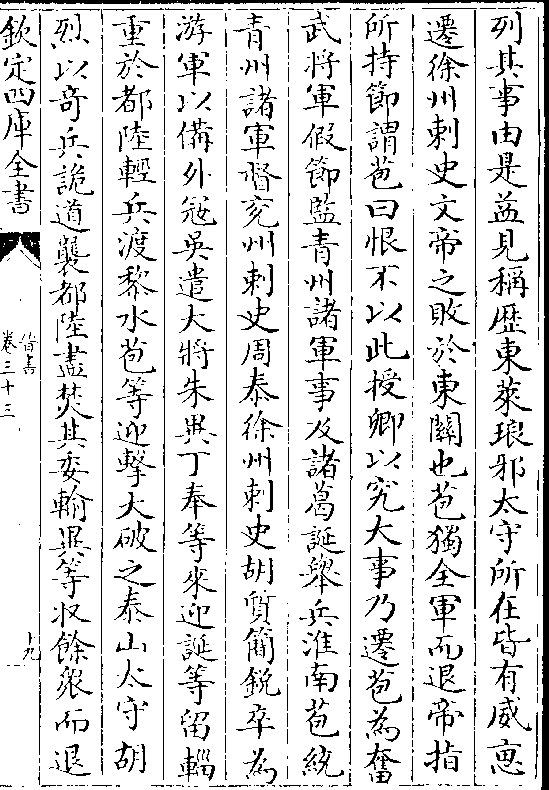 列其事由是益見稱歴東萊琅邪太守所在皆有威惠
遷徐州刺史文帝之敗於東關也苞獨全軍而退帝指
所持節謂苞曰恨不以此授卿以究大事乃遷苞為奮
武將軍假節監青州諸軍事及諸葛誕舉兵淮南苞統
青州諸軍督兖州刺史周泰徐州刺史胡質簡鋭卒為
游軍以備外冦吳遣大將朱異丁奉等來迎誕等留輜
重於都陸輕兵渡黎水苞等迎擊大破之泰山太守胡
烈以竒兵詭道襲都陸盡焚其委輸異等收餘衆而退
欽定四庫全書
晉書
卷三十三
十九